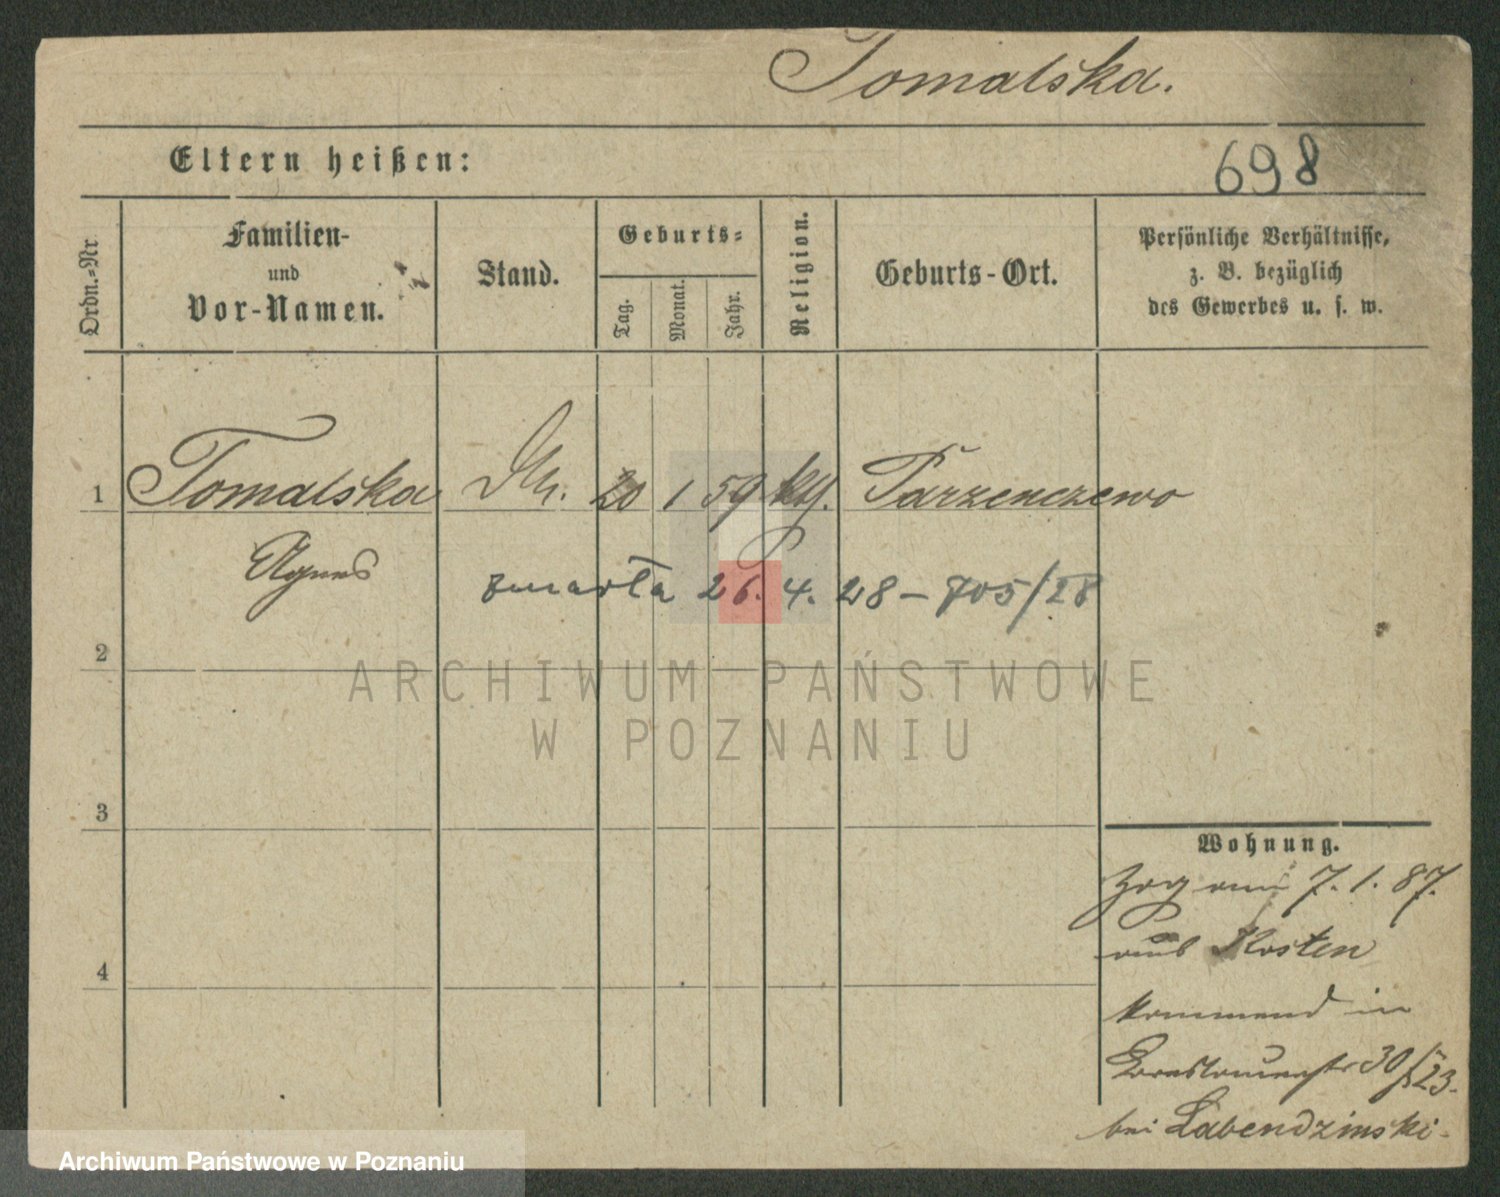 Tomalska.
Eltern heißen:
698
Ordn.-Nr.
Familien-
und
Vor-Namen.
Stand.
Geburts-
Tag.
Monat.
Jahr.
Religion.
Geburts-Ort.
Persönliche Verhältnisse,
z. B. bezüglich
des Gewerbes u. s. w.
1 Tomalska 20 1 59 kth. Parzenczewo
Agnes
zmarła 26. 4. 28 – 705/28
2
ARCHIWUM PAŃSTWOWE
W POZNANIU
3
Wohnung.
Zog am 7. 1. 87.
aus Kosten
4
kommend in
30/23.
bei Labendzinski.
Archiwum Państwowe w Poznaniu